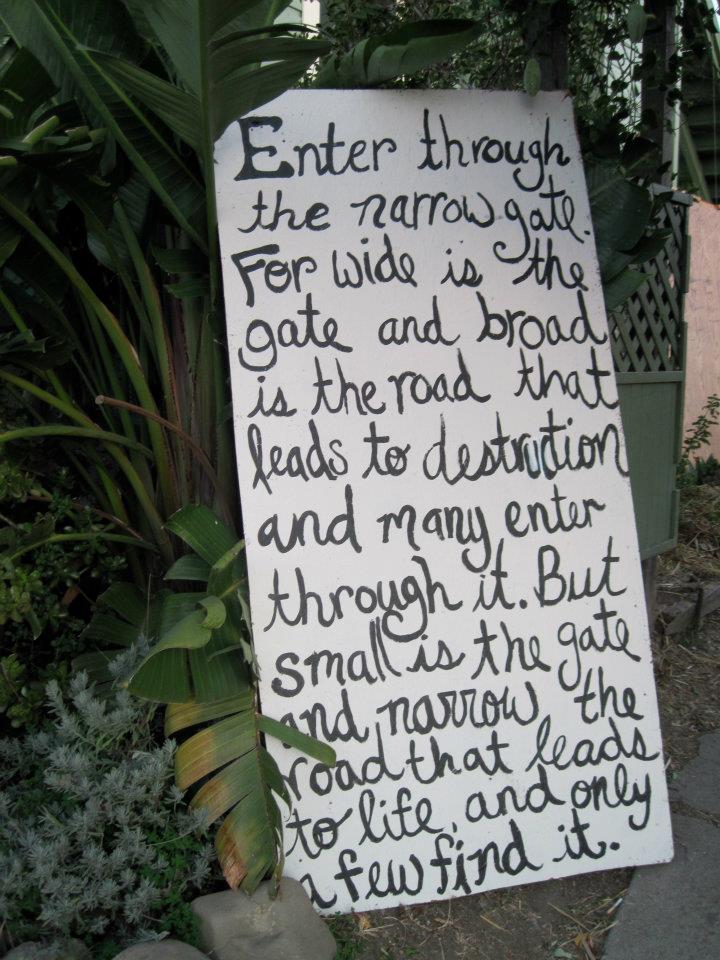 Enter through
the narrow gate.
For wide is the
gate and broad
is the road that
leads to destruction
and many enter
through it. But
small is the gate
and narrow the
road that leads
to life, and only
a few find it.